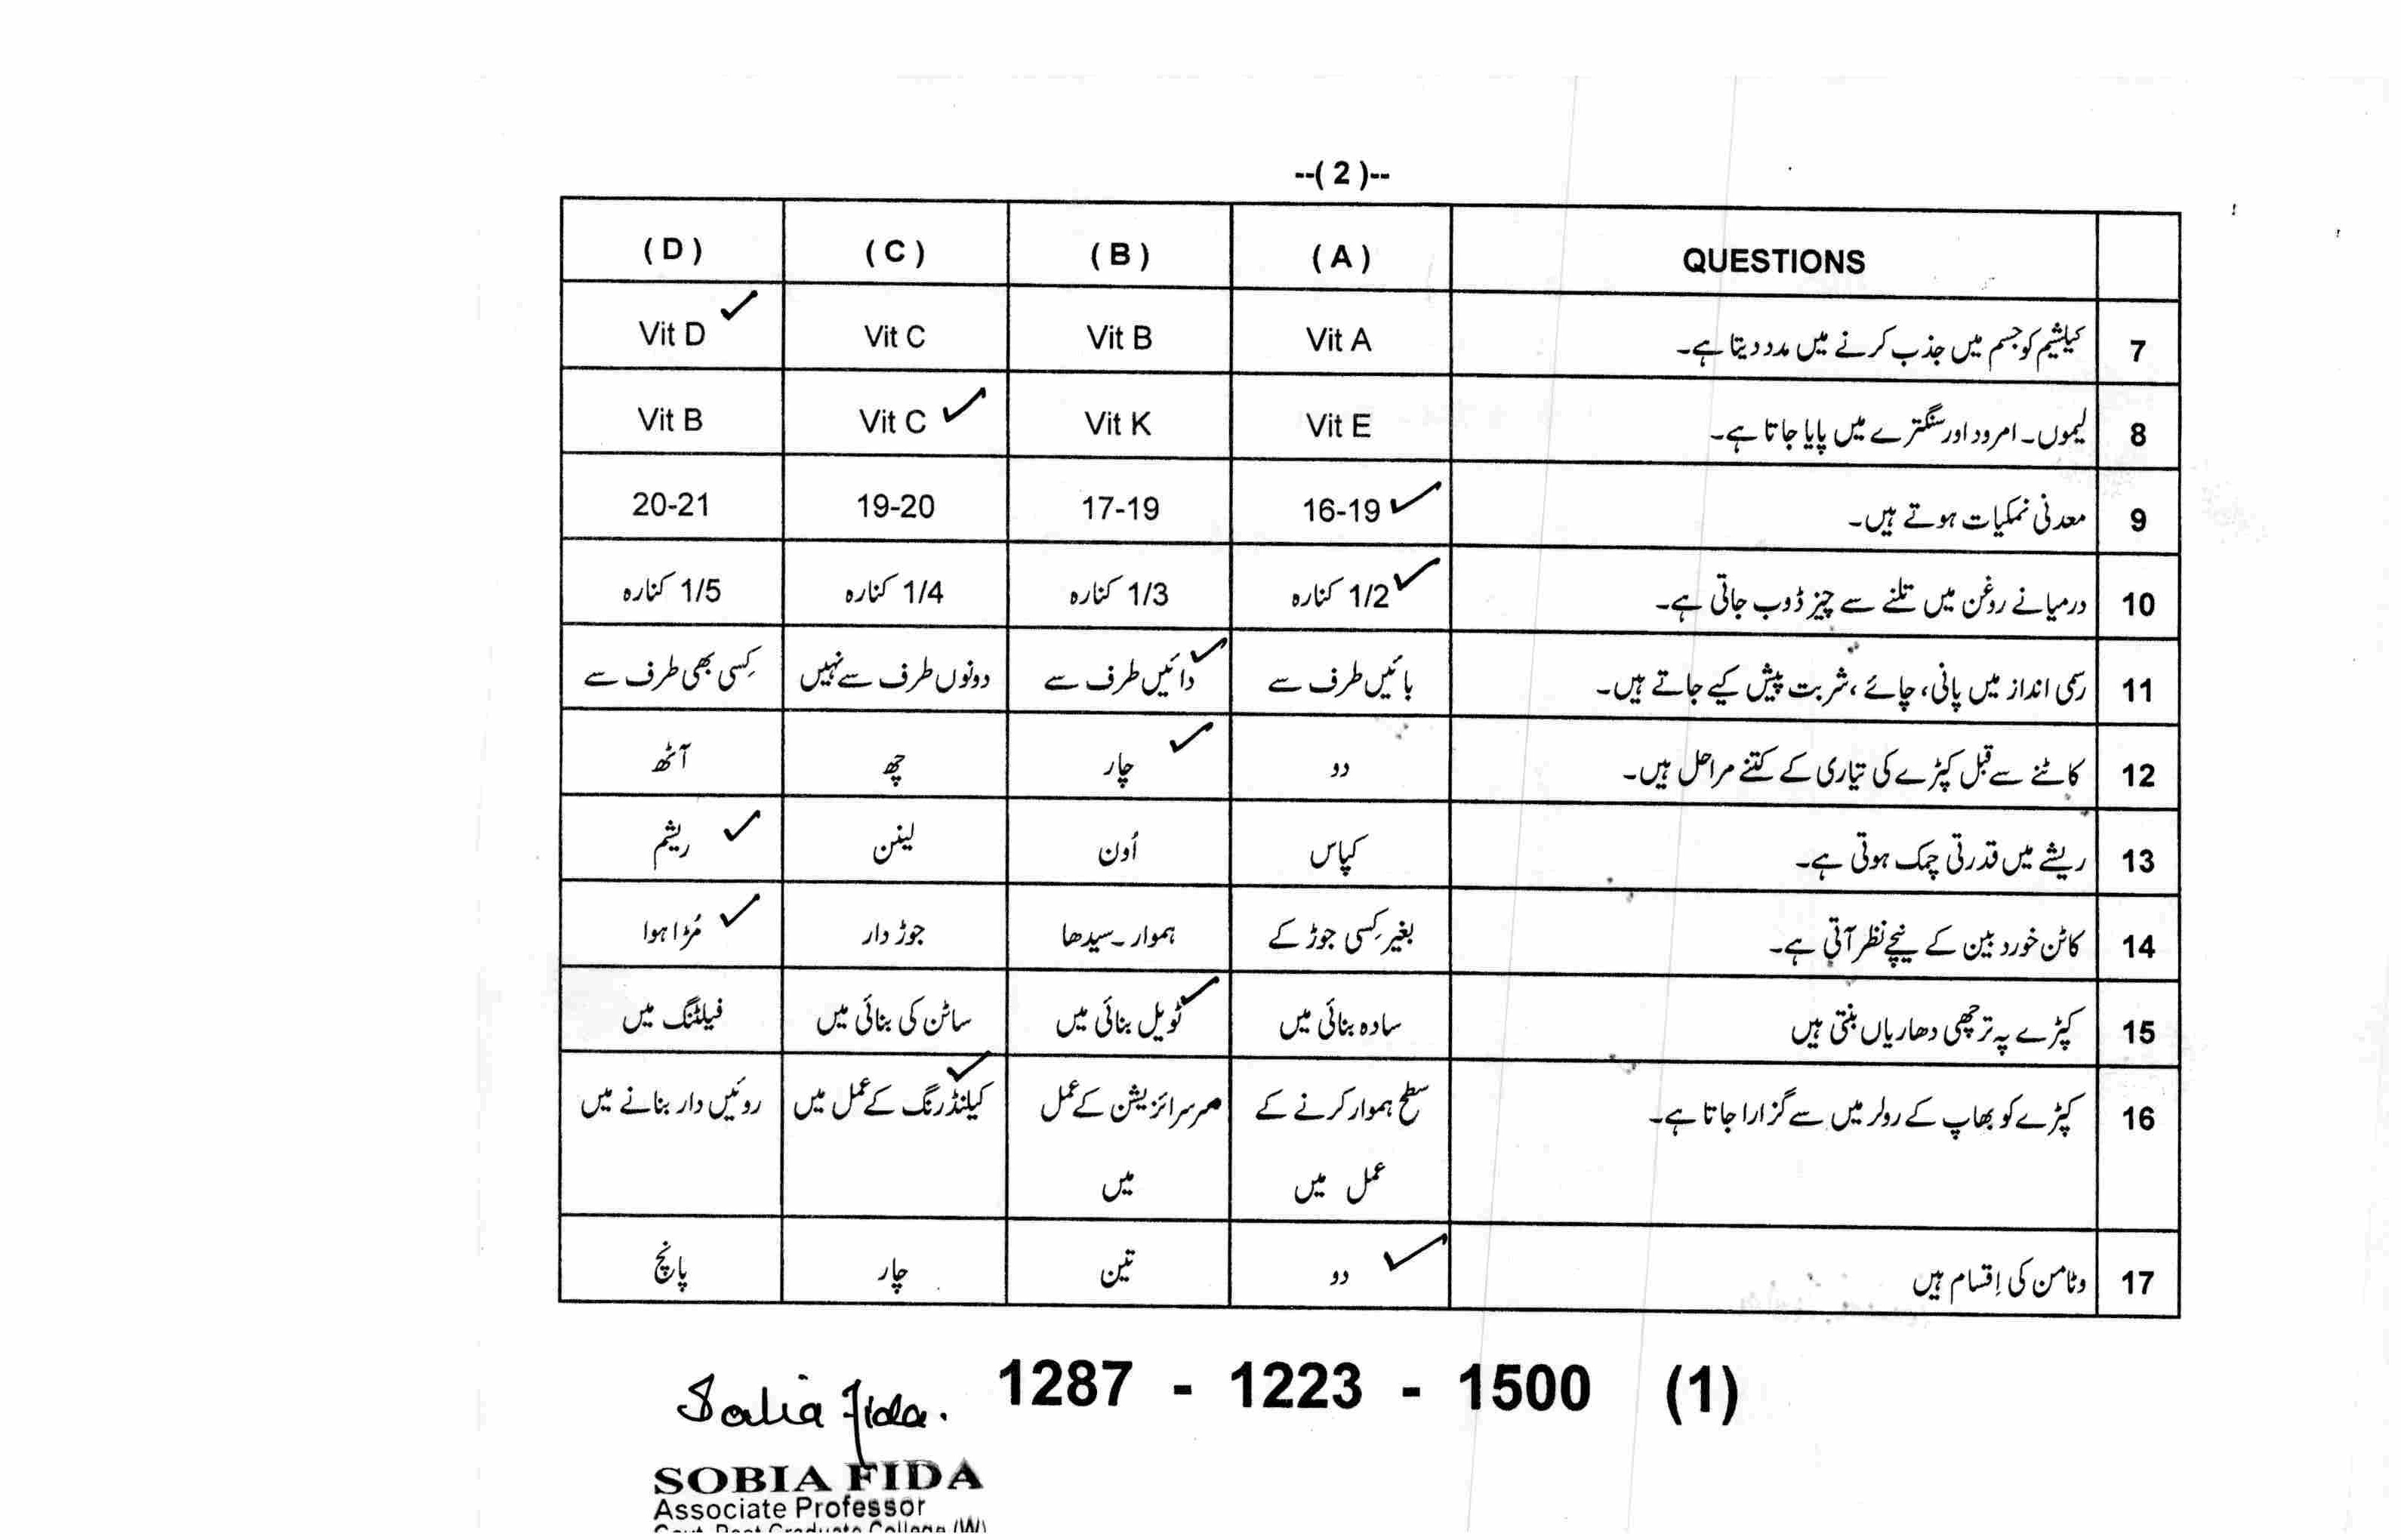 --( 2 )--
QUESTIONS (A) (B) (C) (D)
7 کیلشیم کو جسم میں جذب کرنے میں مدد دیتا ہے۔ Vit A Vit B Vit C Vit D ✓
8 لیموں۔ امرود اور سنگترے میں پایا جاتا ہے۔ Vit E Vit K Vit C ✓ Vit B
9 معدنی نمکیات ہوتے ہیں۔ 16-19 ✓ 17-19 19-20 20-21
10 درمیانے روغن میں تلنے سے چیز ڈوب جاتی ہے۔ 1/2 کنارہ ✓ 1/3 کنارہ 1/4 کنارہ 1/5 کنارہ
11 رسمی انداز میں پانی، چائے، شربت پیش کیے جاتے ہیں۔ بائیں طرف سے دائیں طرف سے ✓ دونوں طرف سے نہیں کِسی بھی طرف سے
12 کاٹنے سے قبل کپڑے کی تیاری کے کتنے مراحل ہیں۔ دو چار ✓ چھ آٹھ
13 ریشے میں قدرتی چمک ہوتی ہے۔ کپاس اُون لینن ریشم ✓
14 کاٹن خورد بین کے نیچے نظر آتی ہے۔ بغیر کِسی جوڑ کے ہموار۔سیدھا جوڑ دار مُڑا ہوا ✓
15 کپڑے پہ ترچھی دھاریاں بنتی ہیں سادہ بنائی میں ٹویل بنائی میں ✓ ساٹن کی بنائی میں فیلٹنگ میں
16 کپڑے کو بھاپ کے رولر میں سے گزارا جاتا ہے۔ سطح ہموار کرنے کے مرسرائزیشن کے عمل کیلنڈرنگ کے عمل میں ✓ روئیں دار بنانے میں
عمل میں میں
17 وٹامن کی اِقسام ہیں دو ✓ تین چار پانچ
1287 - 1223 - 1500 (1)
Sobia Fida.
SOBIA FIDA
Associate Professor
Govt. Post Graduate College (W)